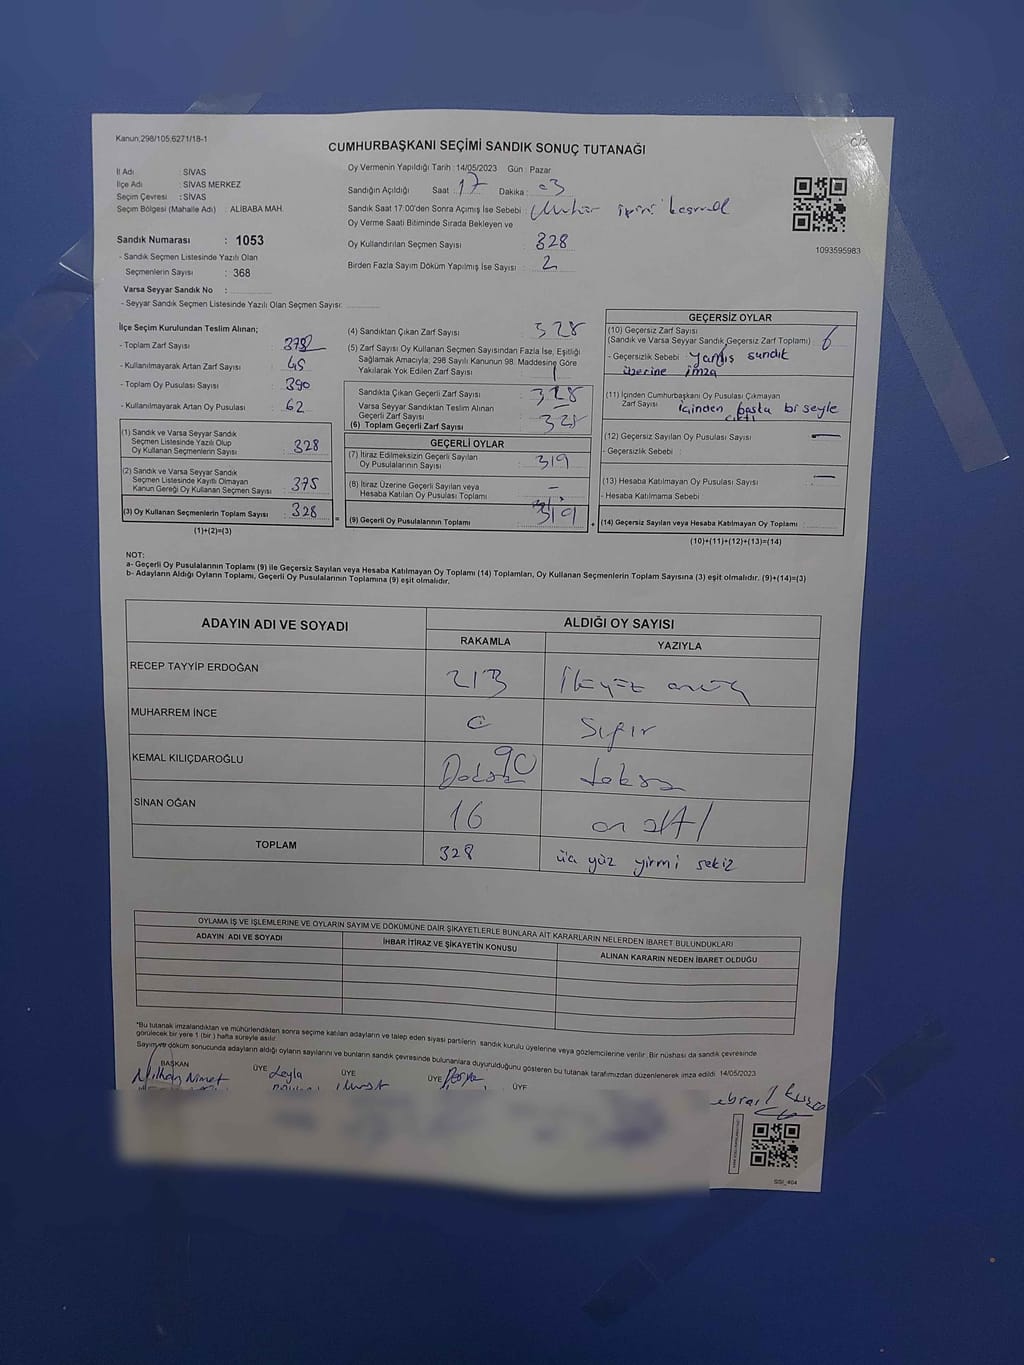 Kanun,298/105,6271/18-1
CUMHURBAŞKANI SEÇİMİ SANDIK SONUÇ TUTANAĞI
İl Adı : SİVAS
İlçe Adı : SİVAS MERKEZ
Seçim Çevresi : SİVAS
Seçim Bölgesi (Mahalle Adı) : ALİBABA MAH.
Sandık Numarası : 1053
- Sandık Seçmen Listesinde Yazılı Olan
Seçmenlerin Sayısı : 368
Varsa Seyyar Sandık No :
- Seyyar Sandık Seçmen Listesinde Yazılı Olan Seçmen Sayısı:
Oy Vermenin Yapıldığı Tarih : 14/05/2023 Gün : Pazar
Sandığın Açıldığı Saat : 17 Dakika : 03
Sandık Saat 17:00'den Sonra Açımış İse Sebebi : Mühür ipini kesmek
Oy Verme Saati Bitiminde Sırada Bekleyen ve
Oy Kullandırılan Seçmen Sayısı : 328
Birden Fazla Sayım Döküm Yapılmış İse Sayısı : 2
1093595983
İlçe Seçim Kurulundan Teslim Alınan;
- Toplam Zarf Sayısı :
- Kullanılmayarak Artan Zarf Sayısı : 45
- Toplam Oy Pusulası Sayısı : 390
- Kullanılmayarak Artan Oy Pusulası : 62
(1) Sandık ve Varsa Seyyar Sandık
Seçmen Listesinde Yazılı Olup
Oy Kullanan Seçmenlerin Sayısı : 328
(2) Sandık ve Varsa Seyyar Sandık
Seçmen Listesinde Kayıtlı Olmayan
Kanun Gereği Oy Kullanan Seçmen Sayısı : 375
(3) Oy Kullanan Seçmenlerin Toplam Sayısı : 328
(1)+(2)=(3)
(4) Sandıktan Çıkan Zarf Sayısı : 328
(5) Zarf Sayısı Oy Kullanan Seçmen Sayısından Fazla İse, Eşitliği
Sağlamak Amacıyla, 298 Sayılı Kanunun 98. Maddesine Göre
Yakılarak Yok Edilen Zarf Sayısı :
Sandıkta Çıkan Geçerli Zarf Sayısı : 328
Varsa Seyyar Sandıktan Teslim Alınan
Geçerli Zarf Sayısı : –
(6) Toplam Geçerli Zarf Sayısı : 328
GEÇERLİ OYLAR
(7) İtiraz Edilmeksizin Geçerli Sayılan
Oy Pusulalarının Sayısı : 319
(8) İtiraz Üzerine Geçerli Sayılan veya
Hesaba Katılan Oy Pusulası Toplamı : –
(9) Geçerli Oy Pusulalarının Toplamı : 319
GEÇERSİZ OYLAR
(10) Geçersiz Zarf Sayısı
(Sandık ve Varsa Seyyar Sandık Geçersiz Zarf Toplamı) : 6
- Geçersizlik Sebebi : yanlış sandık
üzerine imza
(11) İçinden Cumhurbaşkanı Oy Pusulası Çıkmayan
Zarf Sayısı : içinden başka bi şeyle
çıktı
(12) Geçersiz Sayılan Oy Pusulası Sayısı : —
- Geçersizlik Sebebi :
(13) Hesaba Katılmayan Oy Pusulası Sayısı : —
- Hesaba Katılmama Sebebi
(14) Geçersiz Sayılan veya Hesaba Katılmayan Oy Toplamı :
(10)+(11)+(12)+(13)=(14)
NOT:
a- Geçerli Oy Pusulalarının Toplamı (9) ile Geçersiz Sayılan veya Hesaba Katılmayan Oy Toplamı (14) Toplamları, Oy Kullanan Seçmenlerin Toplam Sayısına (3) eşit olmalıdır. (9)+(14)=(3)
b- Adayların Aldığı Oyların Toplamı, Geçerli Oy Pusulalarının Toplamına (9) eşit olmalıdır.
ADAYIN ADI VE SOYADI
ALDIĞI OY SAYISI
RAKAMLA YAZIYLA
RECEP TAYYİP ERDOĞAN 213 İkiyüz onüç
MUHARREM İNCE 0 Sıfır
KEMAL KILIÇDAROĞLU 90 doksan
SİNAN OĞAN 16 on altı
TOPLAM 328 üç yüz yirmi sekiz
OYLAMA İŞ VE İŞLEMLERİNE VE OYLARIN SAYIM VE DÖKÜMÜNE DAİR ŞİKAYETLERLE BUNLARA AİT KARARLARIN NELERDEN İBARET BULUNDUKLARI
ADAYIN ADI VE SOYADI İHBAR İTİRAZ VE ŞİKAYETİN KONUSU ALINAN KARARIN NEDEN İBARET OLDUĞU
*Bu tutanak imzalandıktan ve mühürlendikten sonra seçime katılan adayların ve talep eden siyasi partilerin sandık kurulu üyelerine veya gözlemcilerine verilir. Bir nüshası da sandık çevresinde
görülecek bir yere 1 (bir) hafta süreyle asılır.
Sayım ve döküm sonucunda adayların aldığı oyların sayılarını ve bunların sandık çevresinde bulunanlara duyurulduğunu gösteren bu tutanak tarafımızdan düzenlenerek imza edildi. 14/05/2023
BAŞKAN ÜYE ÜYE ÜYE ÜYE
Nimet Leyla
SSI_404